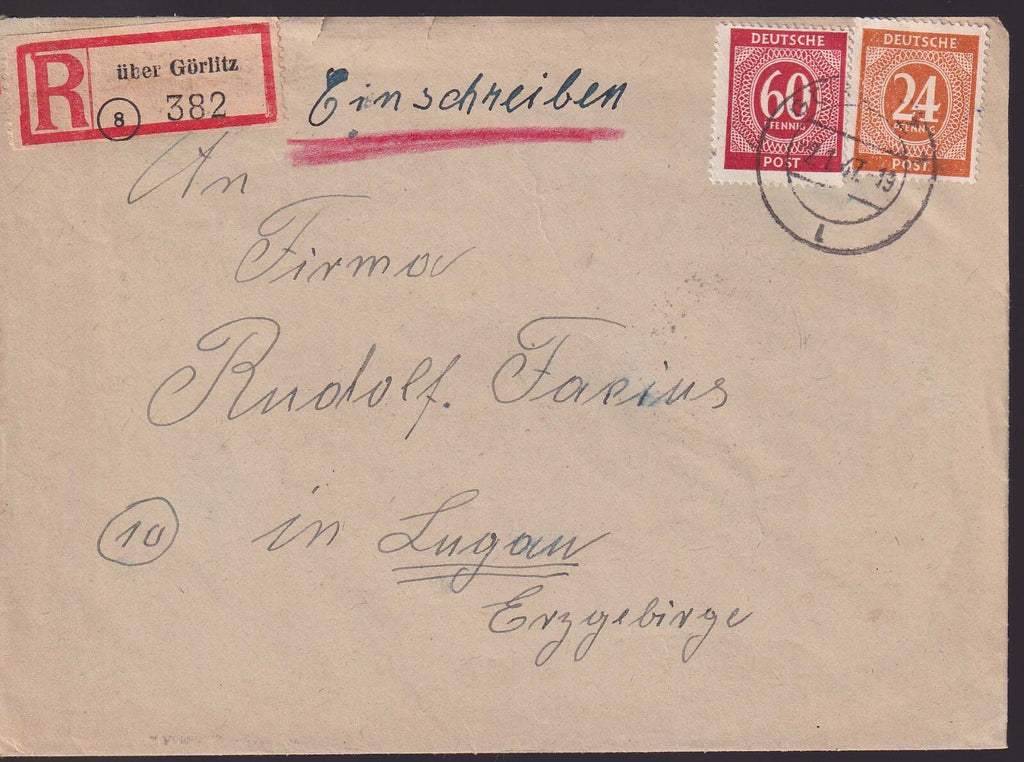 R über Görlitz
8 382
Einschreiben
DEUTSCHE
60
PFENNIG
POST
DEUTSCHE
24
PFENNIG
POST
An
Firma
Rudolf. Facius
10 in Lugau
Erzgebirge